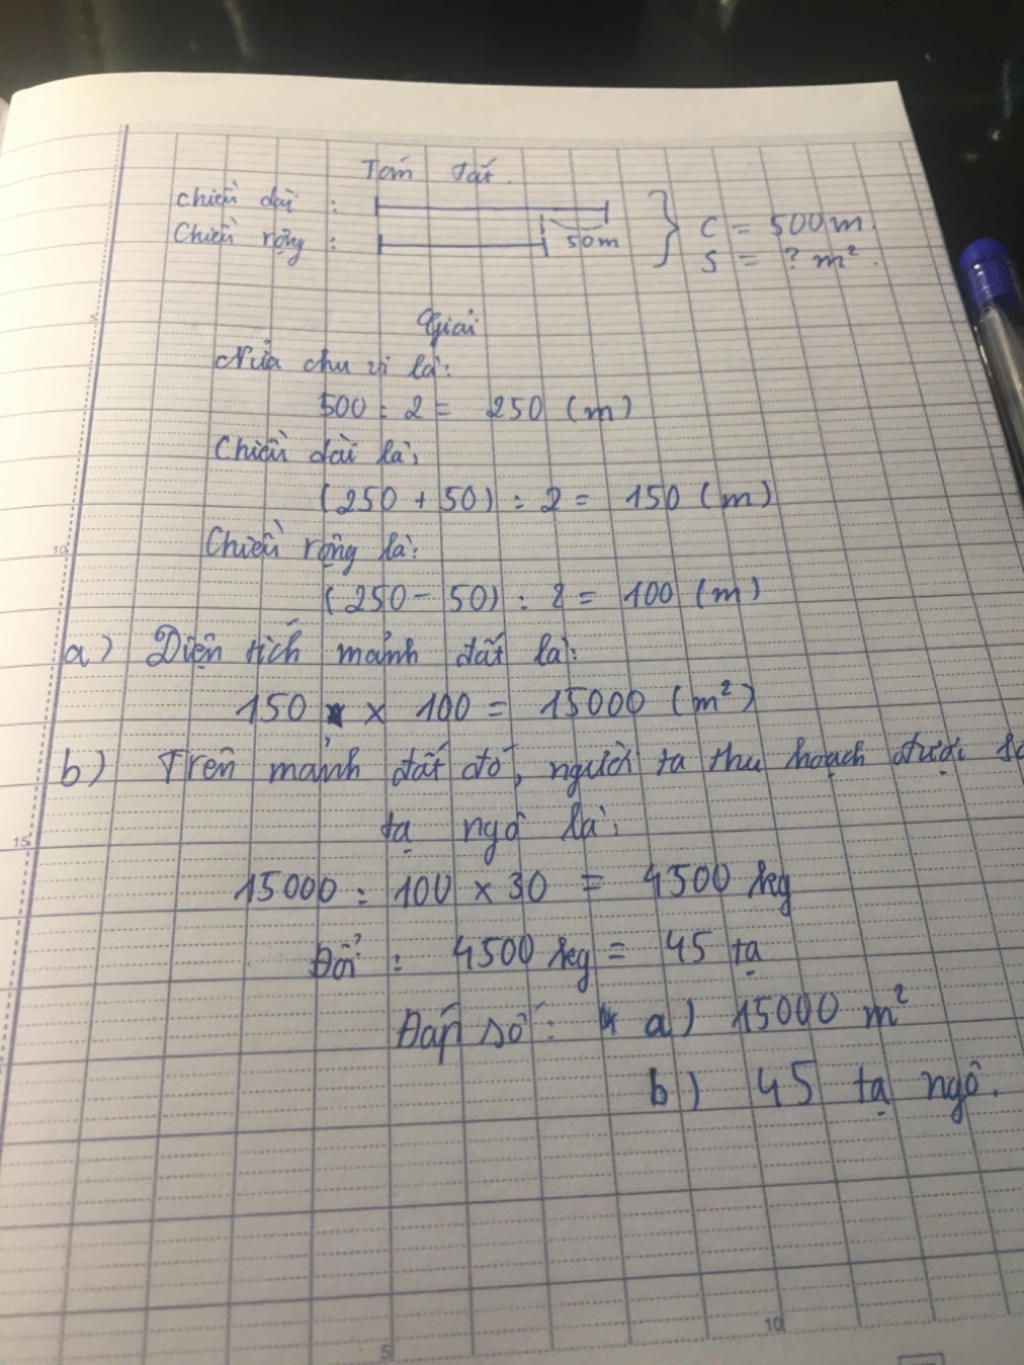 Tóm tắt.
Chiều dài :
Chiều rộng : 50m
C = 500m.
S = ? m².
5
Giải
Nửa chu vi là:
500 : 2 = 250 (m)
Chiều dài là:
(250 + 50) : 2 = 150 (m)
10
Chiều rộng là:
(250 - 50) : 2 = 100 (m)
a) Diện tích mảnh đất là:
150 x 100 = 15000 (m²)
b) Trên mảnh đất đó, người ta thu hoạch được
tạ ngô là:
15
15000 : 100 x 30 = 4500 kg
Đổi : 4500 kg = 45 tạ
Đáp số: a) 15000 m²
b) 45 tạ ngô.
10
5